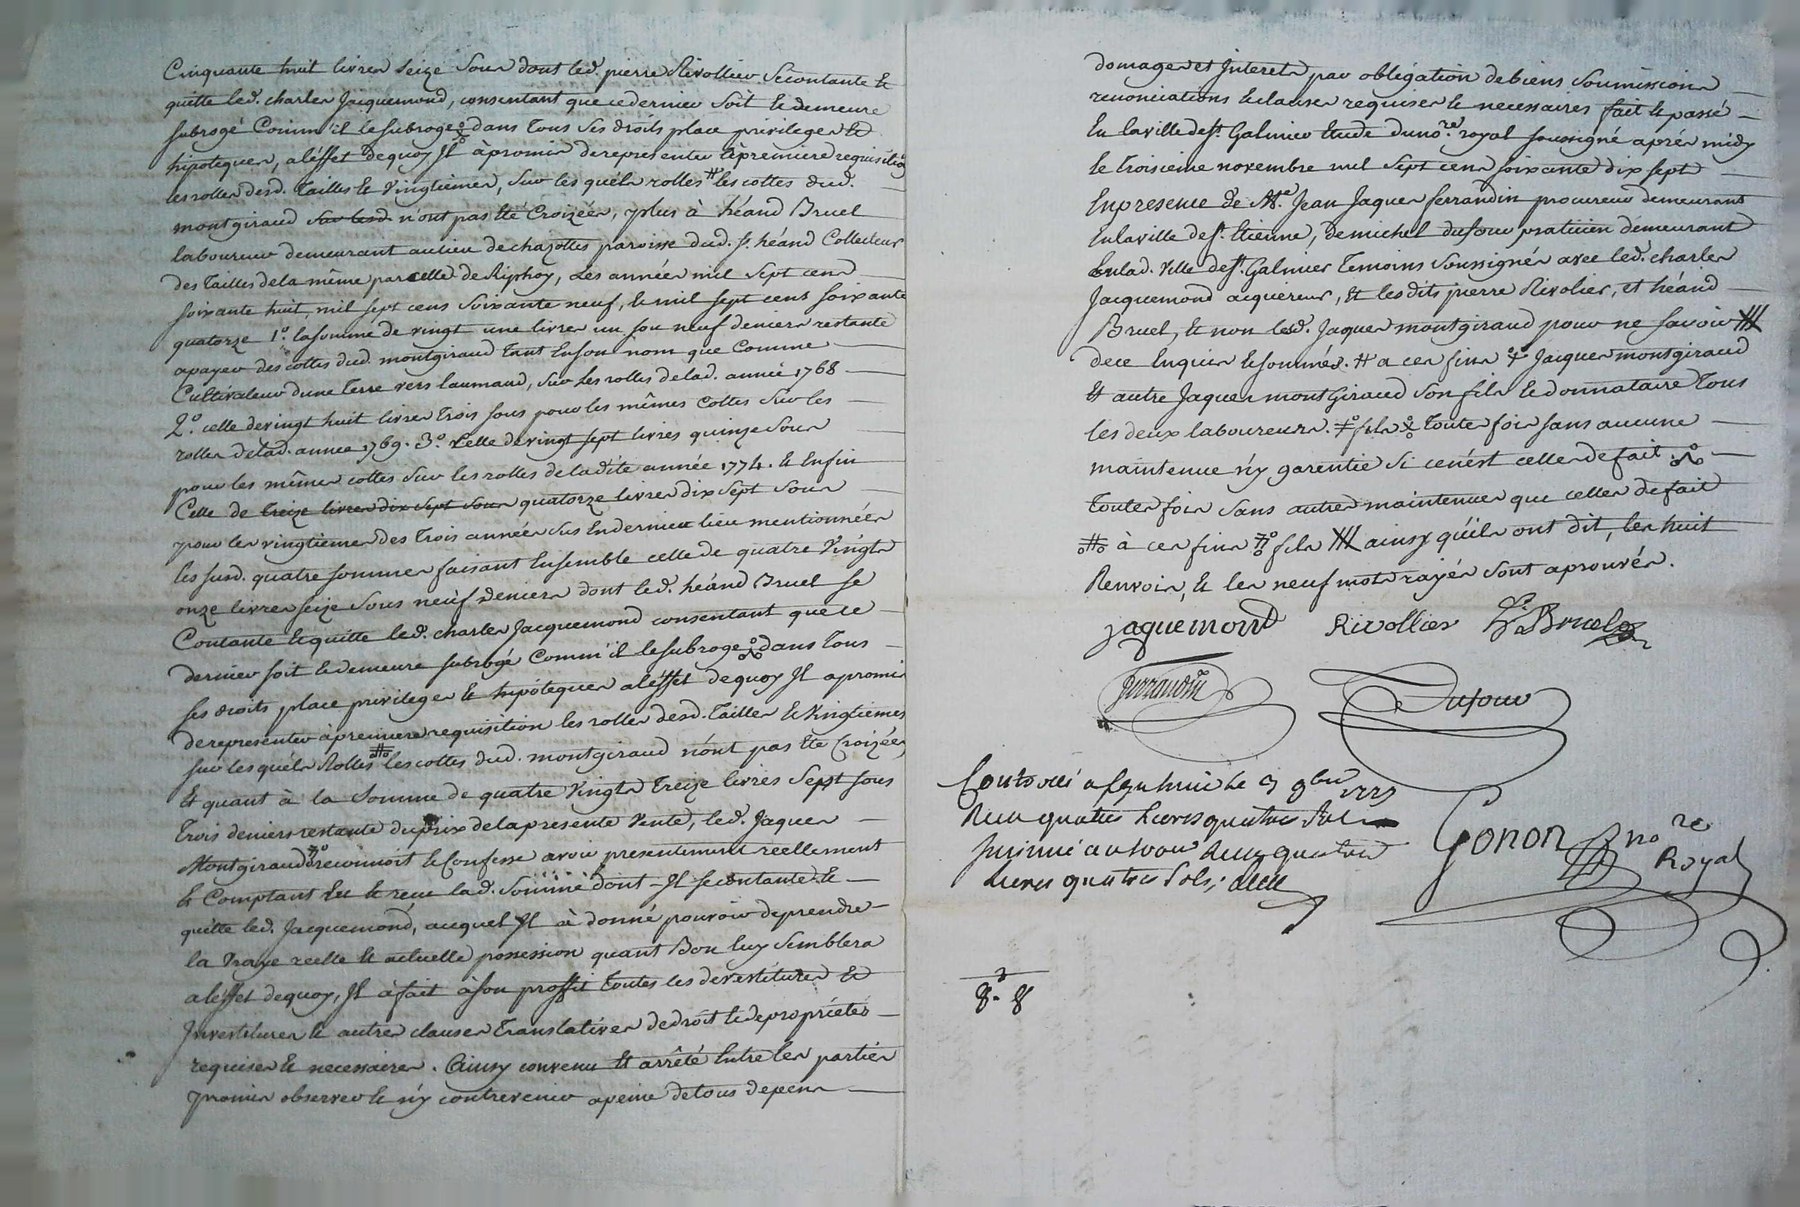 Cinquante huit livres seize sous dont led. pierre Rivollier se contante et
quitte led. charles Jacquemond, consentant que ce dernier soit et demeure
subrogé Comm'il le subroge dans tous ses droits place privileges et
hipoteques, a léffet de quoy Il à promis de representer à premiere requisition
les rolles desd. tailles et vingtiemes, sur les quéls rolles # les cottes dud.
montgiraud sur lesd. n'ont pas été Croizées, plus à héand Bruel
laboureur demeurant au lieu de chazottes paroisse dud. st. héand Collecteur
des tailles de la même parcelle de , des année mil sept cens
soixante huit, mil sept cens soixante neuf, et mil sept cens soixante
quatorze 1.° la somme de vingt une livres un sou neuf deniers restante
a payer des cottes dud. montgiraud tant en son nom que Comme
Cultivateur d'une terre vers laumaud, sur les rolles de lad. année 1768
2.° celle de vingt huit livres trois sous pour les mêmes cottes sur les
rolles de lad. année 1769. 3.° Celle de vingt sept livres quinze sous
pour les mêmes cottes sur les rolles de la dite année 1774. et Enfin
Celle de treize livres dix sept sous quatorze livres dix sept sous
pour les vingtiemes des trois années sus en dernier lieu mentionnées
les susd. quatre sommes faisant Ensemble celle de quatre vingts
onze livres seize sous neuf deniers dont led. héand Bruel se
Contante et quitte led. charles Jacquemond consentant que ce
dernier soit et demeure subrogé Comm'il le subroge dans tous
ses droits place privileges et hipoteques a léffet de quoy Il a promis
de representer à premiere requisition les rolles desd. tailles et vingtiemes
sur les quéls Rolles # les cottes dud. montgiraud n'ont pas été Croizées,
Et quant à la somme de quatre vingts treize livres sept sous
trois deniers restante du prix de la presente vente, led. Jaques
Montgiraud reconnoit et Confesse avoir presentement reellement
et Comptant Eu et reçu lad. somme dont Il se contante et
quitte led. Jacquemond, auquel Il à donné pouvoir de prendre
la vraye reelle et actuelle possession quant Bon luy semblera
a léffet de quoy, Il à fait à son proffit toutes les devestitures et
Investitures et autres clauses translatives de droit et de propriétés
requises et necessaires. Ainsy convenu et arrêté Entre les partiés
promis observer et n'y contrevenir a peine de tous depens
domages et Interets par obligation de biens soumissions
renonciations et clauses requises et necessaires fait et passé
En la ville de st. Galmier Etude du no.re royal soussigné aprés midy
le troisieme novembre mil sept cens soixante dix sept
En presence de M.e Jean Jaques ferrandin procureur demeurant
En la ville de st. Etienne, de michel dufour praticien demeurant
En lad. ville de st. Galmier temoins soussignés avec led. charles
Jacquemond acquereur, et les dits pierre Rivolier, et héand
Bruel, et non led. Jaques montgiraud pour ne savoir
de ce Enquis et sommés. # a ces fins Jacques montgiraud
et autre Jaques montGiraud son fils et donnataire tous
les deux laboureurs. fils toute fois sans aucune
maintenue n'y garentie si cenést celle de fait
toute fois sans autres maintenues que celles de fait
# à ces fins fils ainsy qu'ils ont dit, les huit
Renvois, et les neuf mots rayés sont aprouvés.
jaquemond Rivollier h. Bruel
ferrandin Dufour
Controllé a st galmier le 3 9bre 1777
Reçu quatre livres quatre sols
Insinué au livre Reçu quatre
livres quatre sols;
Gonon no.re
Royal
8. 8